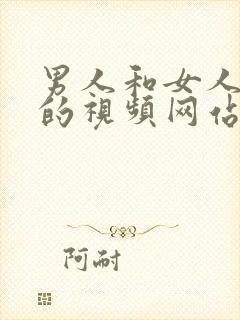 男人和女人
的視頻网佔
阿耐